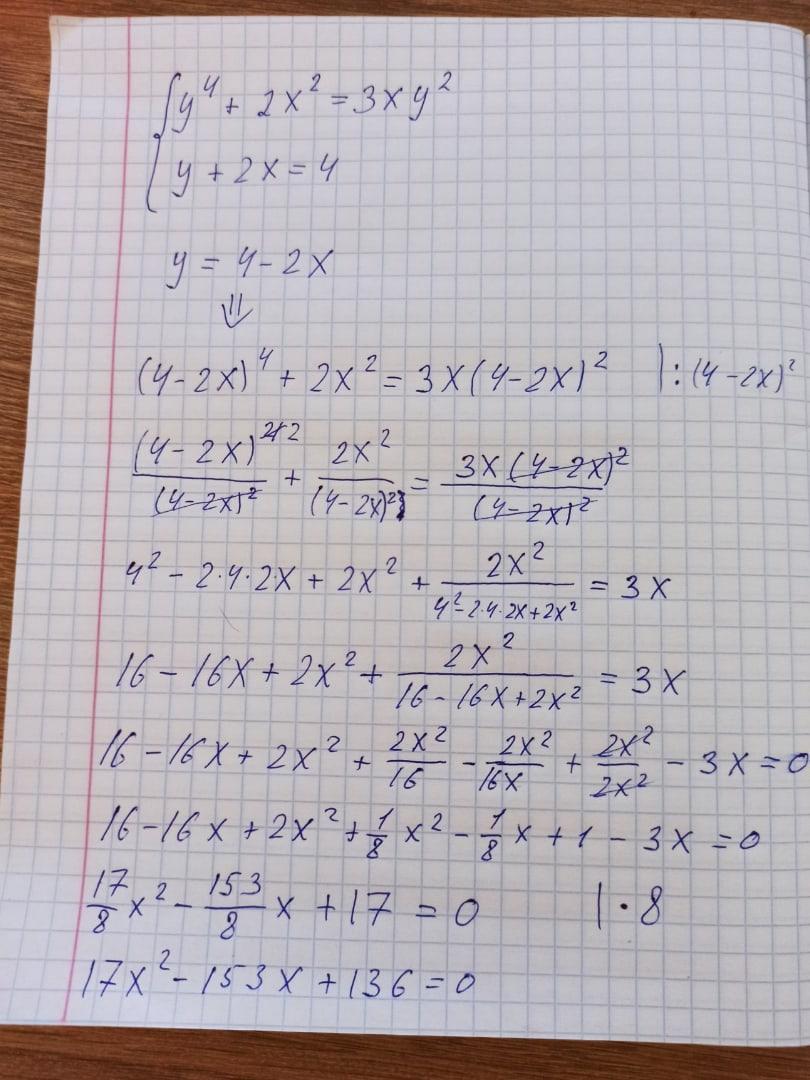 { y⁴ + 2x² = 3xy²
y + 2x = 4
y = 4 - 2x
⇓
(4-2x)⁴ + 2x² = 3x(4-2x)² | : (4-2x)²
(4-2x)²⁺²/(4-2x)² + 2x²/(4-2x)² = 3x(4-2x)²/(4-2x)²
4² - 2·4·2x + 2x² + 2x²/(4²-2·4·2x+2x²) = 3x
16 - 16x + 2x² + 2x²/(16-16x+2x²) = 3x
16 - 16x + 2x² + 2x²/16 - 2x²/16x + 2x²/2x² - 3x = 0
16 - 16x + 2x² + 1/8 x² - 1/8 x + 1 - 3x = 0
17/8 x² - 153/8 x + 17 = 0 | · 8
17x² - 153x + 136 = 0